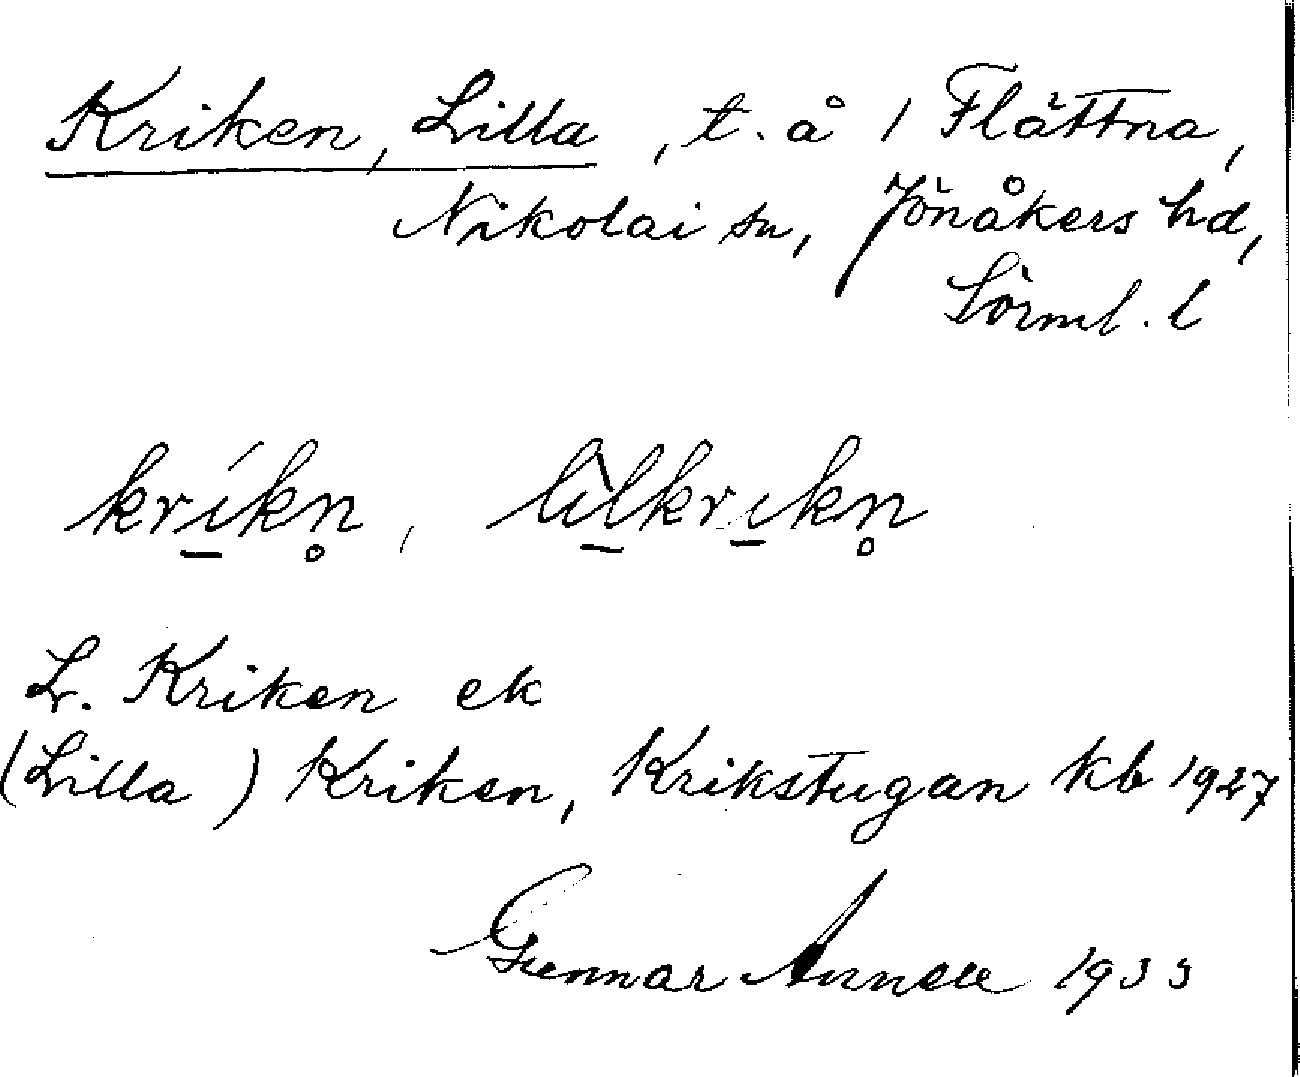 Kriken, Lilla, t. å 1 Flättna,
Nikolai sn, Jönåkers hd,
Sörml. l
kríkn̥, lìlkrikn̥
L. Kriken ek
(Lilla) Kriken, Krikstugan kb 1927
Gunnar 1933